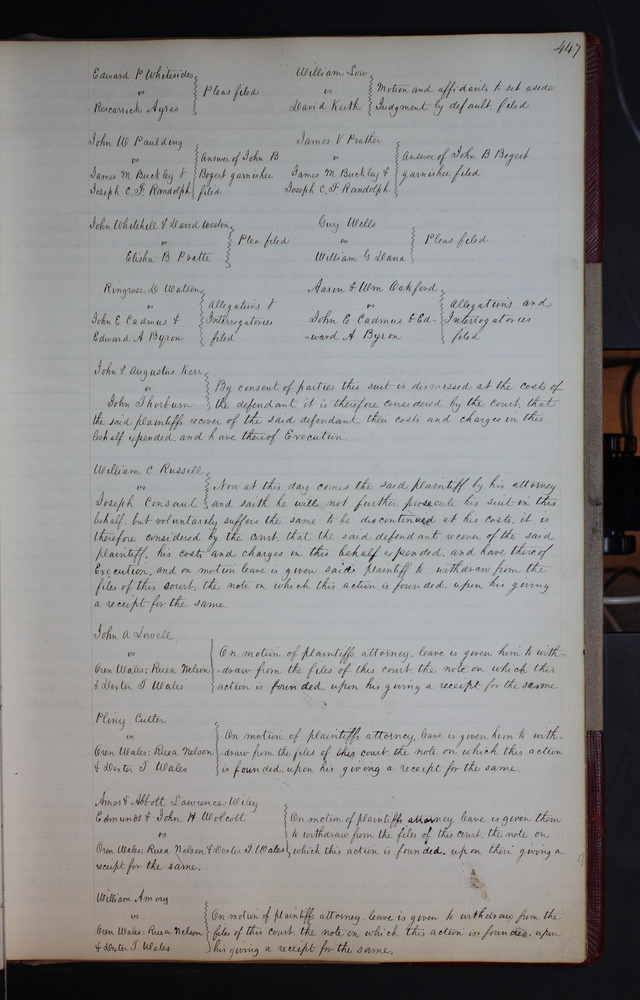 447
Edward P Whitesides
vs
Rescarrick Ayres
Pleas filed
William Low
vs
David Keith
Motion and affidavits to set aside
Judgment by default filed
John W Paulding
vs
James M Buckley &
Joseph C. F. Randolph
Answer of John B
Bogert garnishee
filed
James V Prather
vs
James M Buckley &
Joseph C. F Randolph
Answer of John B Bogert
garnishee filed
John Whitehill & David Weston
vs
Elisha B Pratte
Plea filed
Guy Wells
vs
William G Dana
Pleas filed
Ringrose D Watson
vs
John E Cadmus &
Edward A Byron
Allegations &
Interrogatories
filed
Aaron & Wm Oakford
vs
John E Cadmus & Ed-
-ward A Byron
Allegations and
Interrogatories
filed
John & Augustus Kerr
vs
John Thorburn
By consent of parties this suit is dismissed at the costs of
the defendant, it is therefore considered by the court, that
the said plaintiffs recover of the said defendant their costs and charges in this
behalf expended, and have thereof Execution.
William C Russell
vs
Joseph Consaul
Now at this day comes the said plaintiff by his attorney
and saith he will not further prosecute his suit in this
behalf, but voluntarily suffers the same to be discontinued at his costs, it is
therefore considered by the court, that the said defendant recover of the said
plaintiff, his costs and charges in this behalf expended, and have thereof
Execution, and on motion leave is given said plaintiff to withdraw from the
files of this court, the note on which this action is founded, upon his giving
a receipt for the same.
John A Lovell
vs
Oren Wales; Ruea Nelson
& Dexter T Wales
On motion of plaintiffs attorney, leave is given him to with-
-draw from the files of this court, the note on which this
action is founded, upon his giving a receipt for the same
Pliny Cutler
vs
Oren Wales: Ruea Nelson
& Dexter T Wales
On motion of plaintiffs attorney, leave is given him to with-
-draw from the files of this court the note on which this action
is founded, upon his giving a receipt for the same.
Amos & Abbott Lawrence;
Edmunds & John H Wolcott
vs
Oren Wales; Ruea Nelson & Dexter T. Wales
On motion of plaintiffs attorney leave is given them
to withdraw from the files of this court, the note on
which this action is founded, upon their giving a
receipt for the same.
William Amory
vs
Oren Wales: Ruea Nelson
& Dexter T Wales
On motion of plaintiffs attorney, leave is given to withdraw from the
files of this court the note on which this action is founded, upon
his giving a receipt for the same.